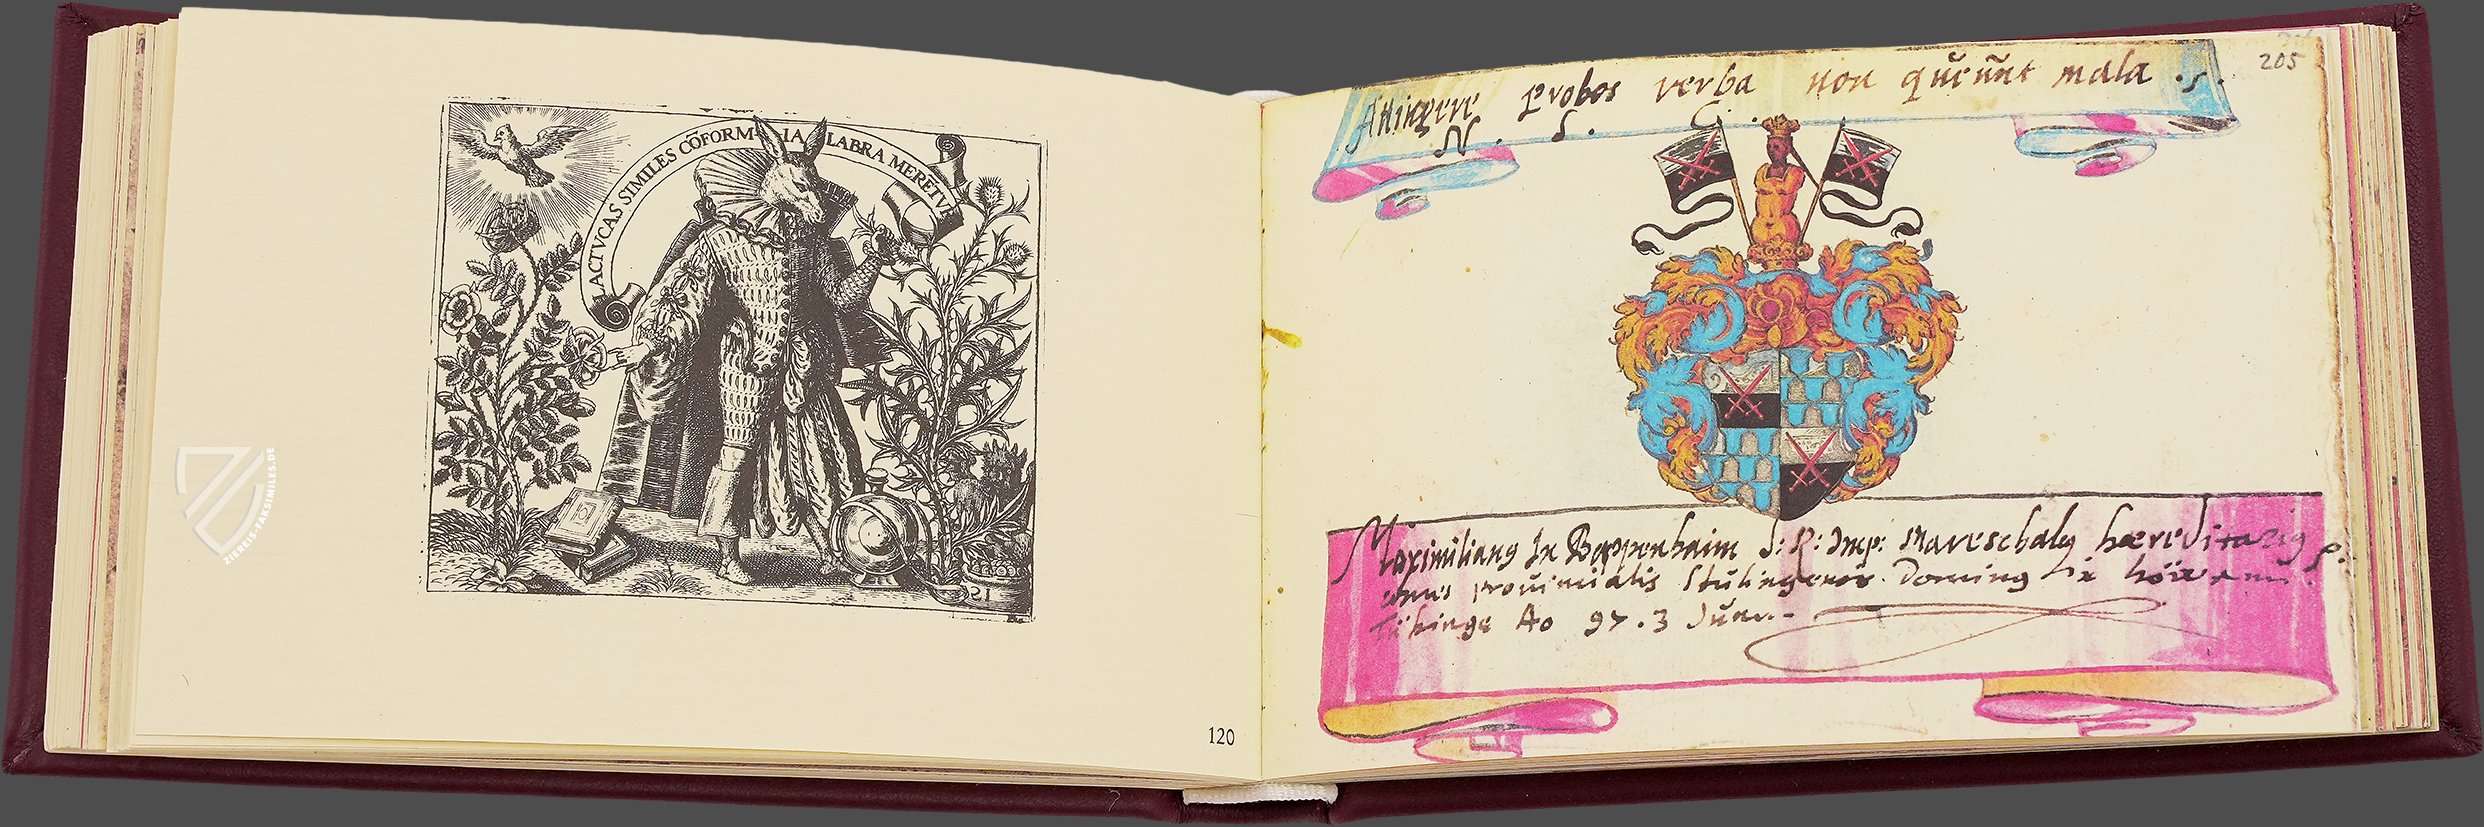 LACTVCAS SIMILES CŌFORMIA LABRA MERĒTVR
ZIEREIS-FAKSIMILES.DE
120
205
Attingere probos verba non queunt mala
N. S. C.
Maximilianus In Bappenhaim S: R: Imp: Mareschalus hæreditarius
provincialis Stulingensis Dominus
Tubinge Ao 97. 3 Juni